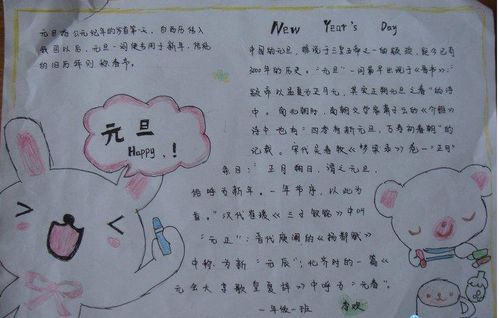 元旦为公元纪年的岁首第一天，自西历传入
我国以后，元旦一词便专用于新年，传统
的旧历年则称春节。
元旦
Happy !
New Year's Day
中国的元旦，据说于三皇五帝之一的颛顼，距今已有
3000年的历史。"元旦"一词最早出现于《晋书》："
颛帝以孟夏为正月元，其实正朔元旦之春"的诗
中。南北朝时，南朝文学家萧子云的《介雅》
诗中也有"四季新元旦，万寿初春朝"的
记载。宋代吴自牧《梦粱录》卷一"正月"
条目："正月朔日，谓之元旦，
俗呼为新年。一年节序，以此为
首。"汉代崔瑗《三子钗铭》中叫
"元正"；晋代庾阐的《扬都赋》
中称为新"元辰"；北齐时的一篇《
元会大享歌皇夏辞》中呼为"元春"。
一年级一班